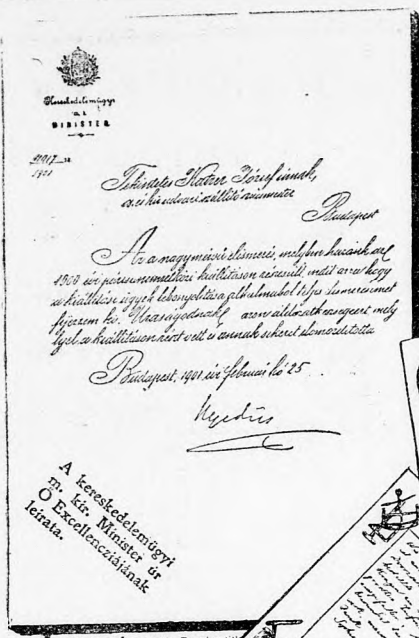 Kereskedelemügyi
m. k.
MINISTER.
1901
Tekintetes Katzer József úrnak,
cs. és kir. udvari szállító szűcsmester
Budapest
Az a nagymérvű elismerés, melyben hazánk az
1900 évi párisi nemzetközi kiállításon részesült, indít arra, hogy
a kiállítási ügyek lebonyolítása alkalmából teljes elismerésemet
fejezzem ki Uraságodnak azon áldozatkészségeért, mely
lyel a kiállításon részt vett s annak sikerét előmozdította
Budapest, 1901. évi február hó 25.
Hegedüs
A kereskedelemügyi
m. kir. Minister úr
Ő Excellencziájának
leirata.